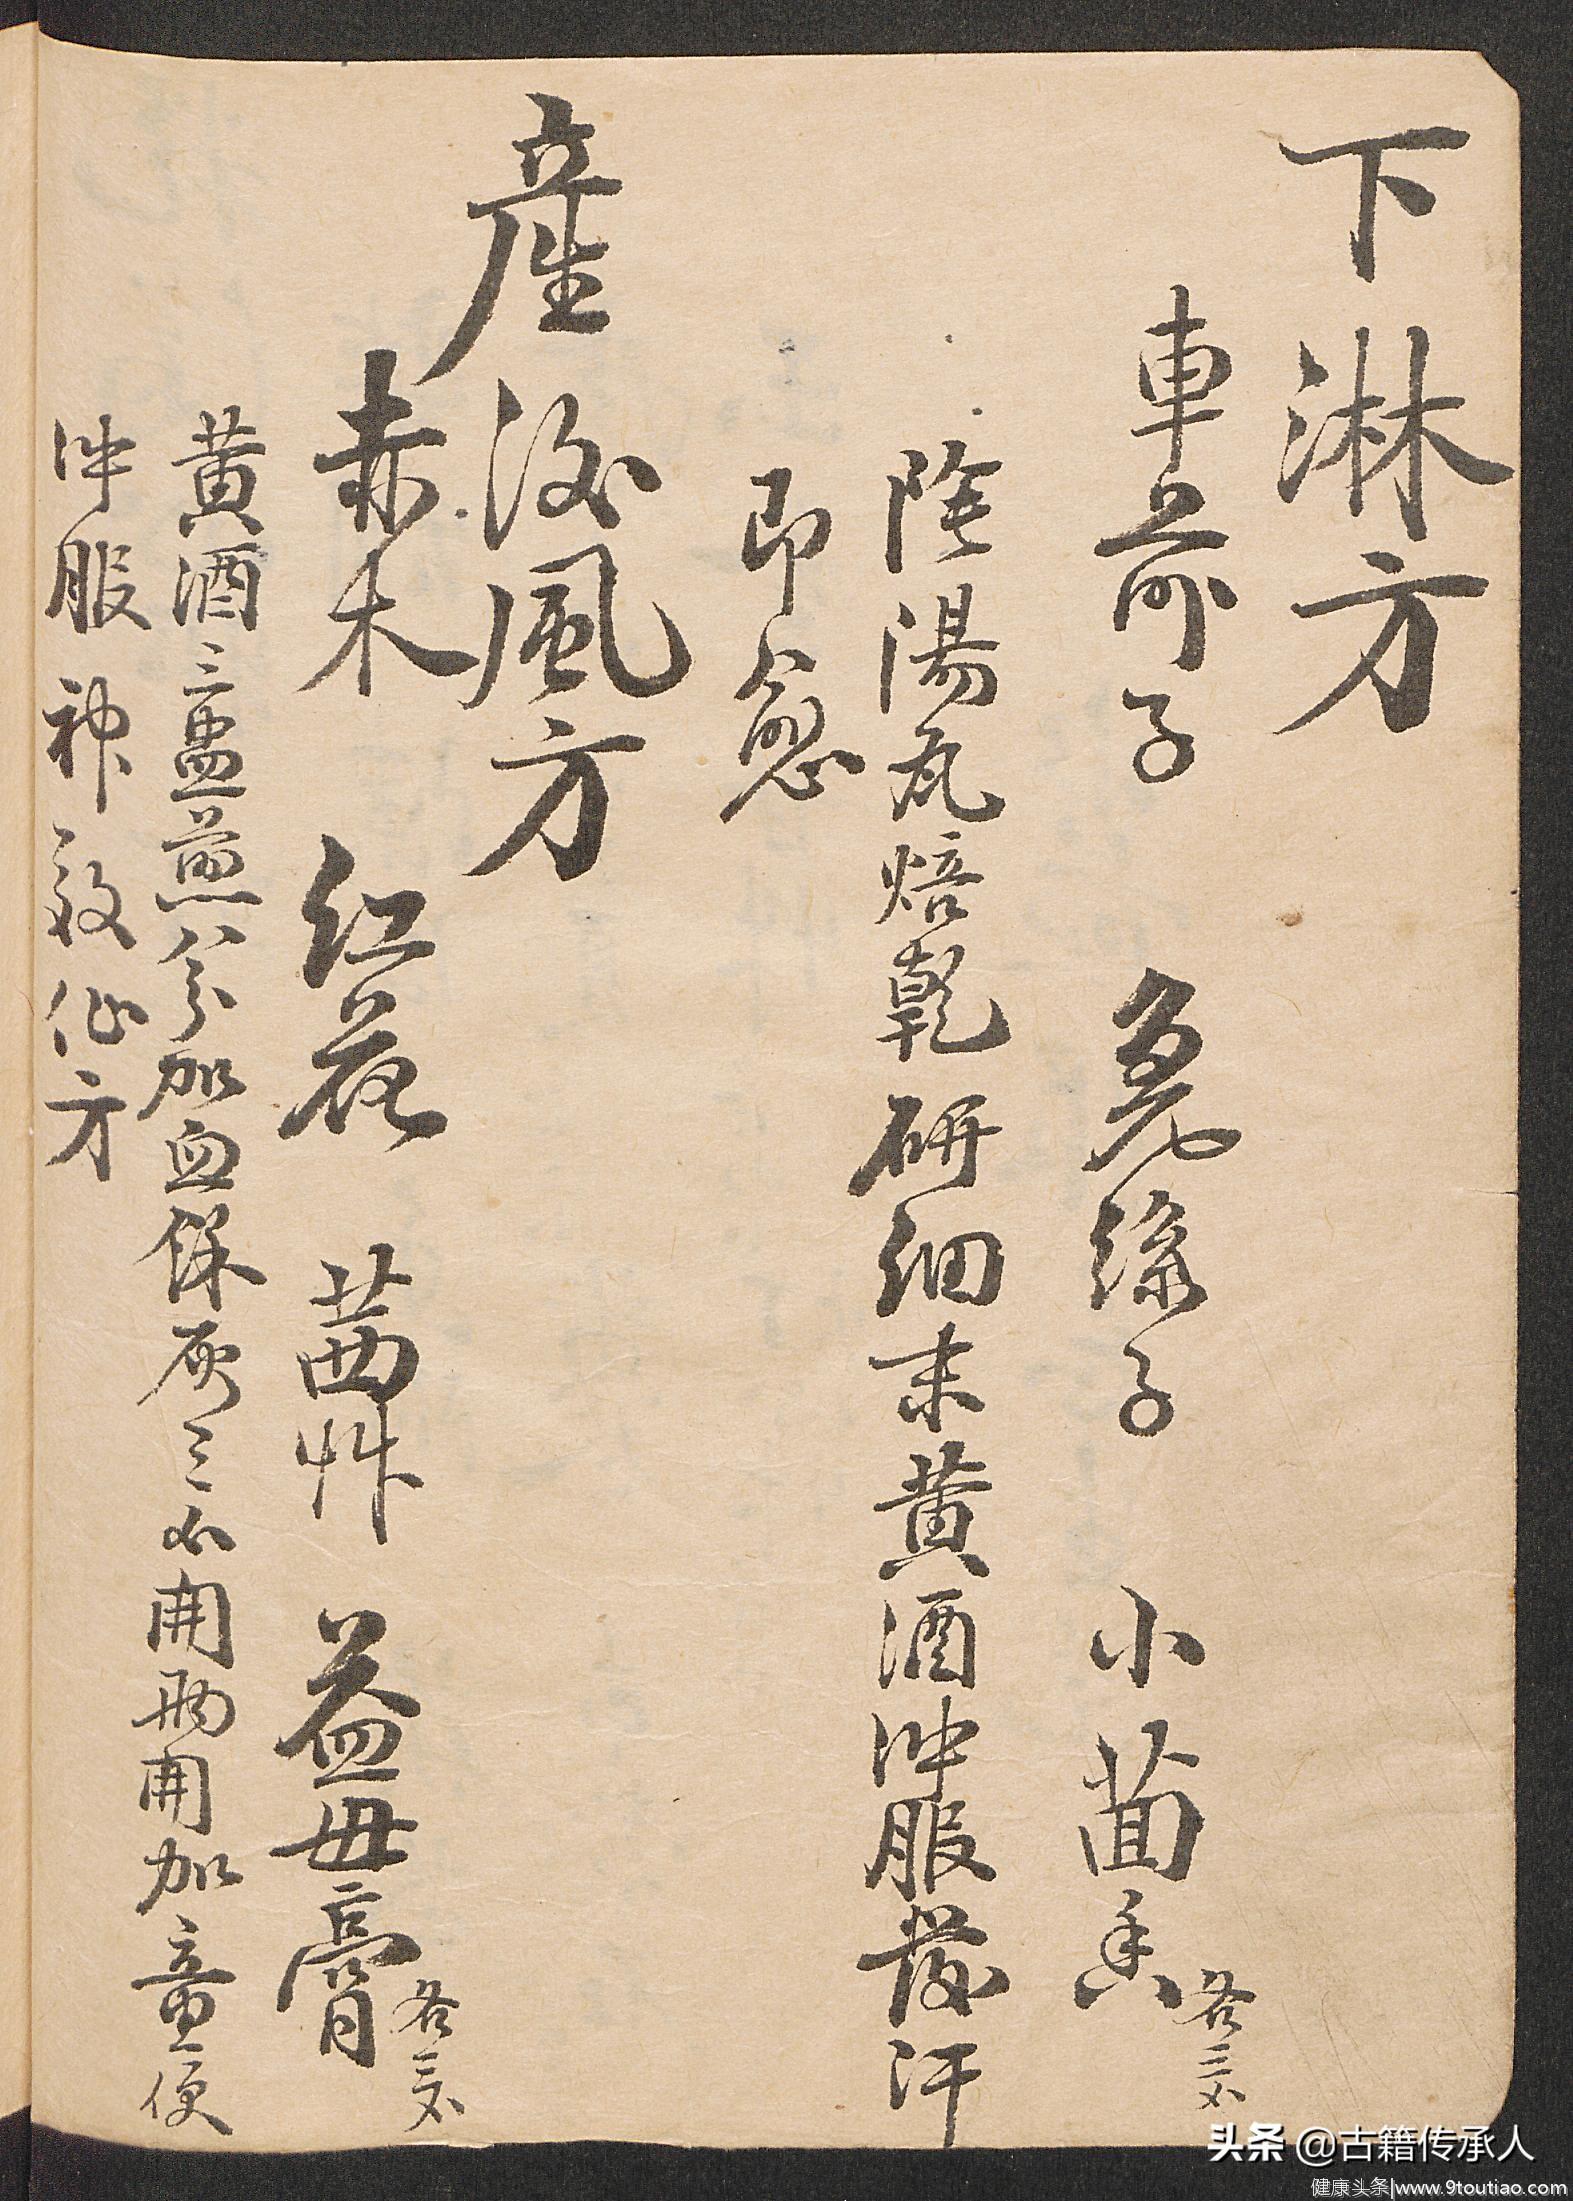 下淋方
車前子 兔絲子 小茴香 各三不
陰陽瓦焙乾研細末黄酒冲服發汗
即愈
產後風方
赤木 红花 茜艸 益母膏 各三不
黄酒三盅煎八分加血餘灰三不開兩開加童便
冲服神效仙方
头条 @古籍传承人
健康头条|www.9toutiao.com